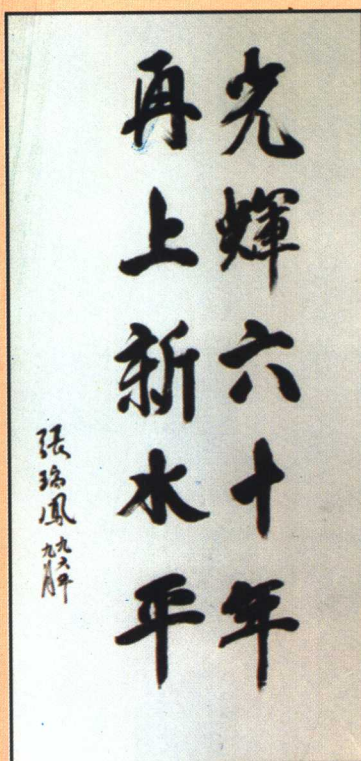 光輝六十年
再上新水平
張瑞鳳 九六年九月